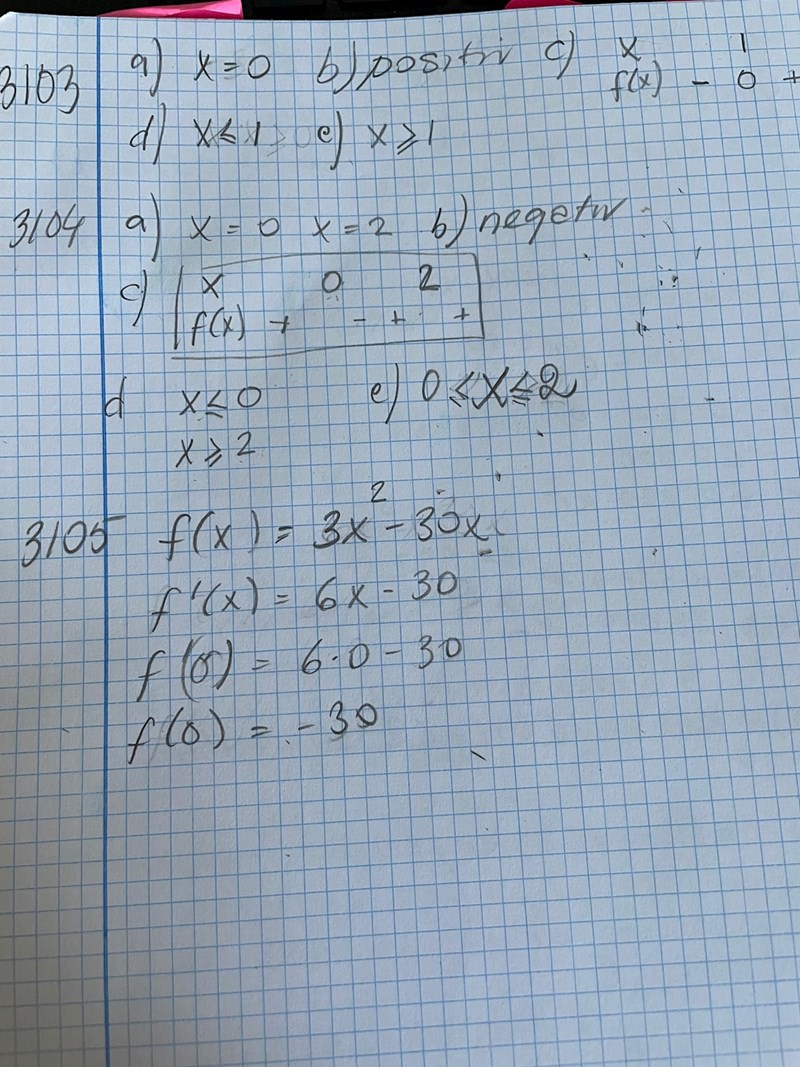 3103 a) x=0 b) positiv c) x 1
f(x) - 0 +
d) x≤1 e) x≥1
3104 a) x=0 x=2 b) negetiv
c) x 0 2
f(x) + - + +
d x≤0 e) 0≤x≤2
x≥2
3105 f(x) = 3x² - 30x
f'(x) = 6x - 30
f(0) = 6·0 - 30
f(0) = -30